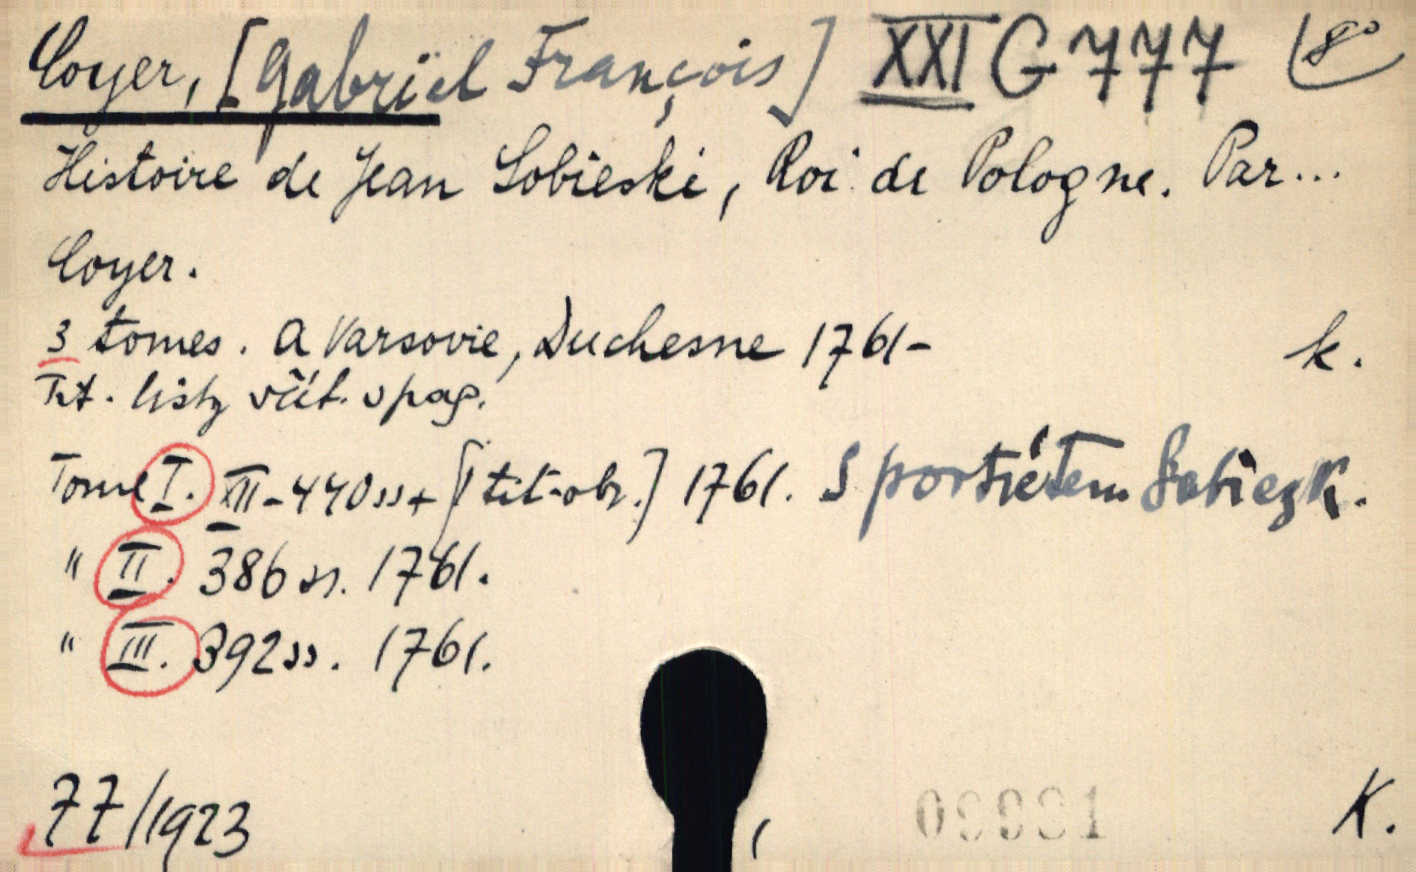 Coyer, [Gabriel François] XXI G 777 8°
Histoire de Jean Sobieski, Roi de Pologne. Par...
Coyer.
3 tomes. A Varsovie, Duchesne 1761- k.
Tit. listy včít. v pag.
Tome I. XII-440 ss + [1 tit. obr.] 1761. S portrétem Sobiesk.
" II. 386 ss. 1761.
" III. 392 ss. 1761.
77/1923 K.